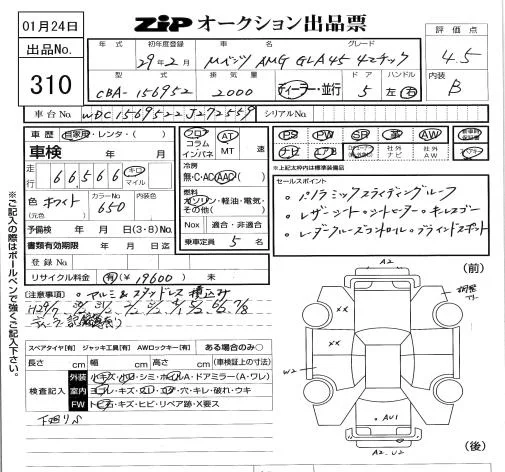 01月24日
ZIP オークション出品票
出品No.
310
年式 初年度登録 車名 グレード
29年2月 Mベンツ AMG GLA45 4マチック
型式 排気量 ドア ハンドル
CBA-156952 2000 ディーラー・並行 5 左 右
評価点
4.5
内装
B
車台No. WDC1569522J272559 シリアルNo.
車歴 自家用・レンタ・( )
車検 年 月
走行 66566 キロ マイル
色 ホワイト (元色) カラーNo. 650 内装色
予備検 年 月 日(3・8)No.
書類有効期限 年 月 日迄
登録No.
リサイクル料金 有(¥19600) 未
フロア コラム インパネ AT MT 速
冷房 無・C・AC(AAC)
燃料 ガソリン・軽油・電気・その他( )
Nox 適合・非適合
乗車定員 5 名
PS PW SR 革 AW
ナビ エアB 社外ナビ 社外AW
※上記太枠内は標準装備品
セールスポイント
・パノラミックスライディングルーフ
・レザーシート・シートヒーター・キーレスゴー
・レーダークルーズコントロール・ブラインドスポット
[注意事項] ・アルミ&スタッドレス積込み
スペアタイヤ[有] ジャッキ工具[有] AWロックキー[有] ある場合のみ○
長さ cm 幅 cm 高さ cm (車検証上の寸法)
検査記入
外装 小キズ・小凹・シミ・ホイルA・ドアミラー(A・ワレ)
室内 ヨゴレ・キズ・スレ・コゲ・穴・キレ・破れ・ウキ
FW トビ石・キズ・ヒビ・リペア跡・X要ス
下廻りS
※ご記入の際はボールペンで強くご記入下さい。
(前)
A2
XX
XX
W2
AU1
A2.U2
(後)